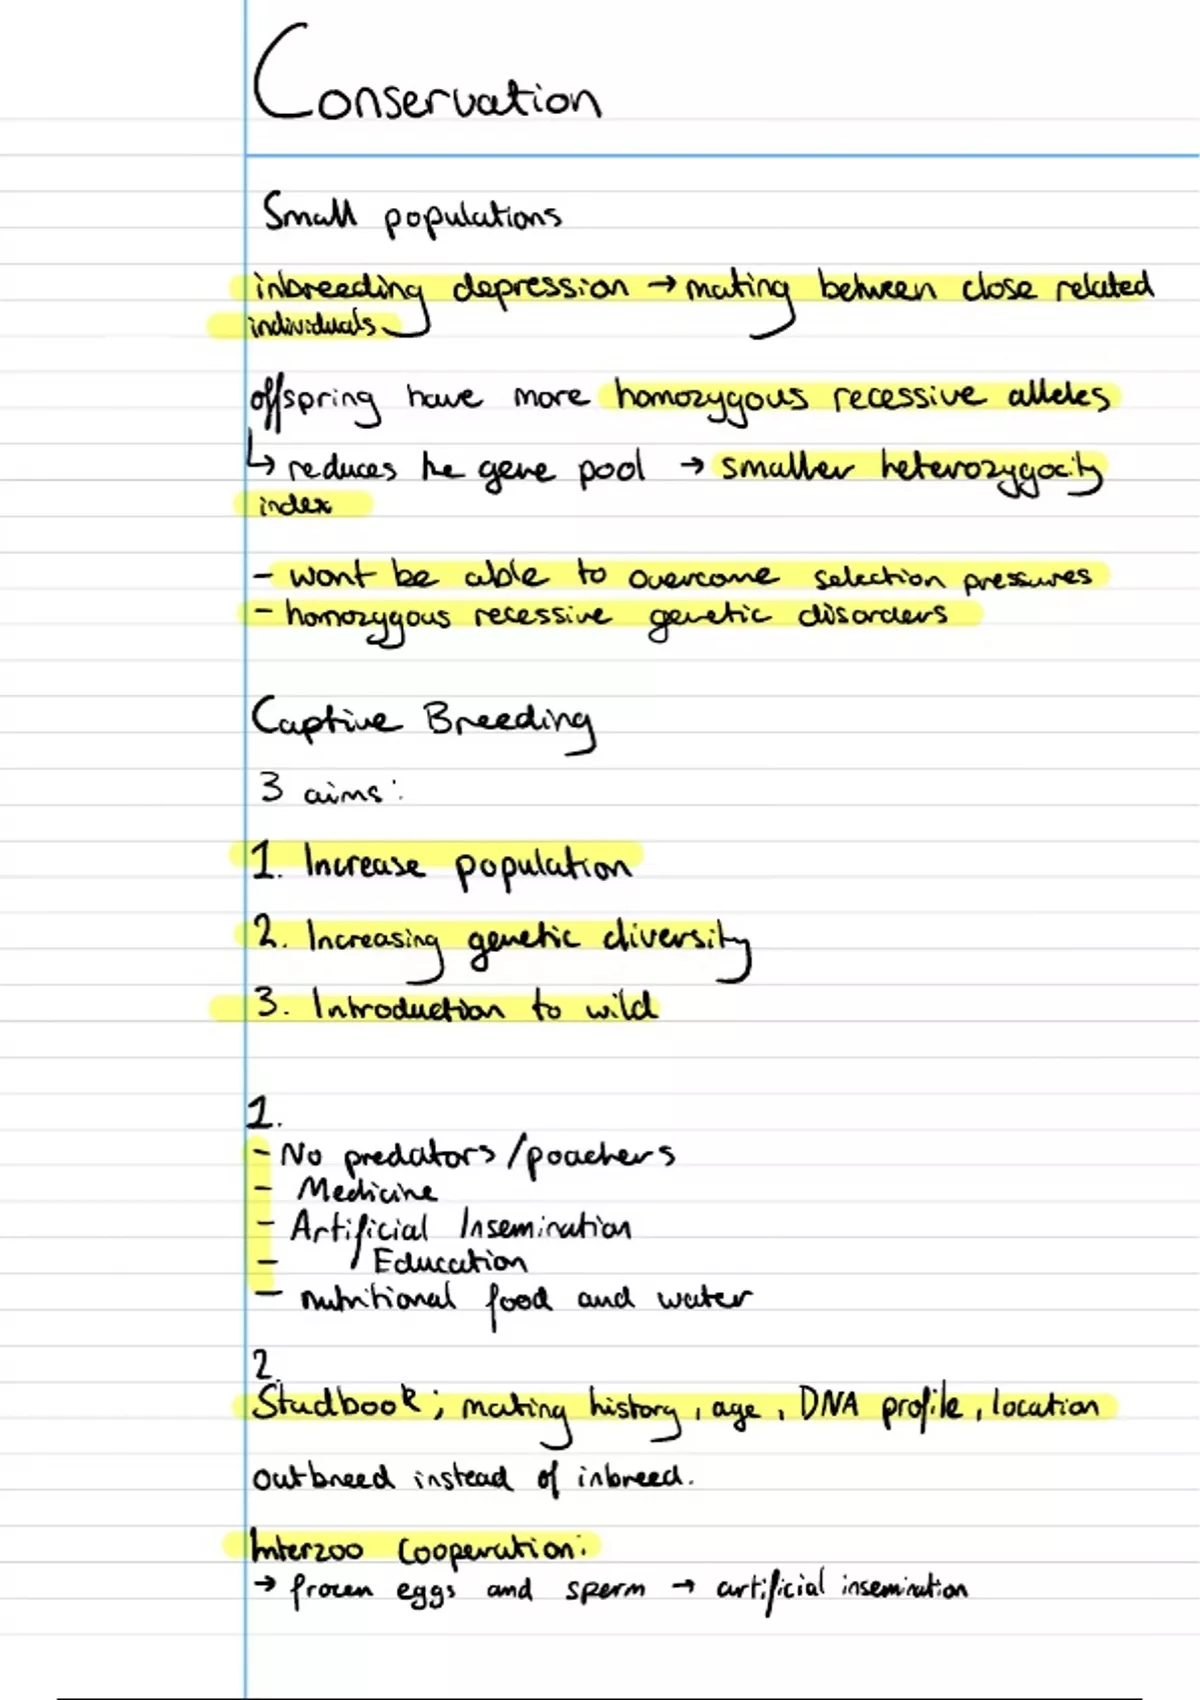 Conservation
Small populations
inbreeding depression → mating between close related
individuals
offspring have more homozygous recessive alleles
↳ reduces he gene pool → smaller heterozygocity
index
- wont be able to overcome selection pressures
- homozygous recessive genetic disorders
Captive Breeding
3 aims:
1. Increase population
2. Increasing genetic diversity
3. Introduction to wild
1.
- No predators/poachers
- Medicine
- Artificial Insemination
- Education
- nutritional food and water
2.
Studbook; mating history, age, DNA profile, location
outbreed instead of inbreed.
Interzoo Cooperation:
→ frozen eggs and sperm → artificial insemination